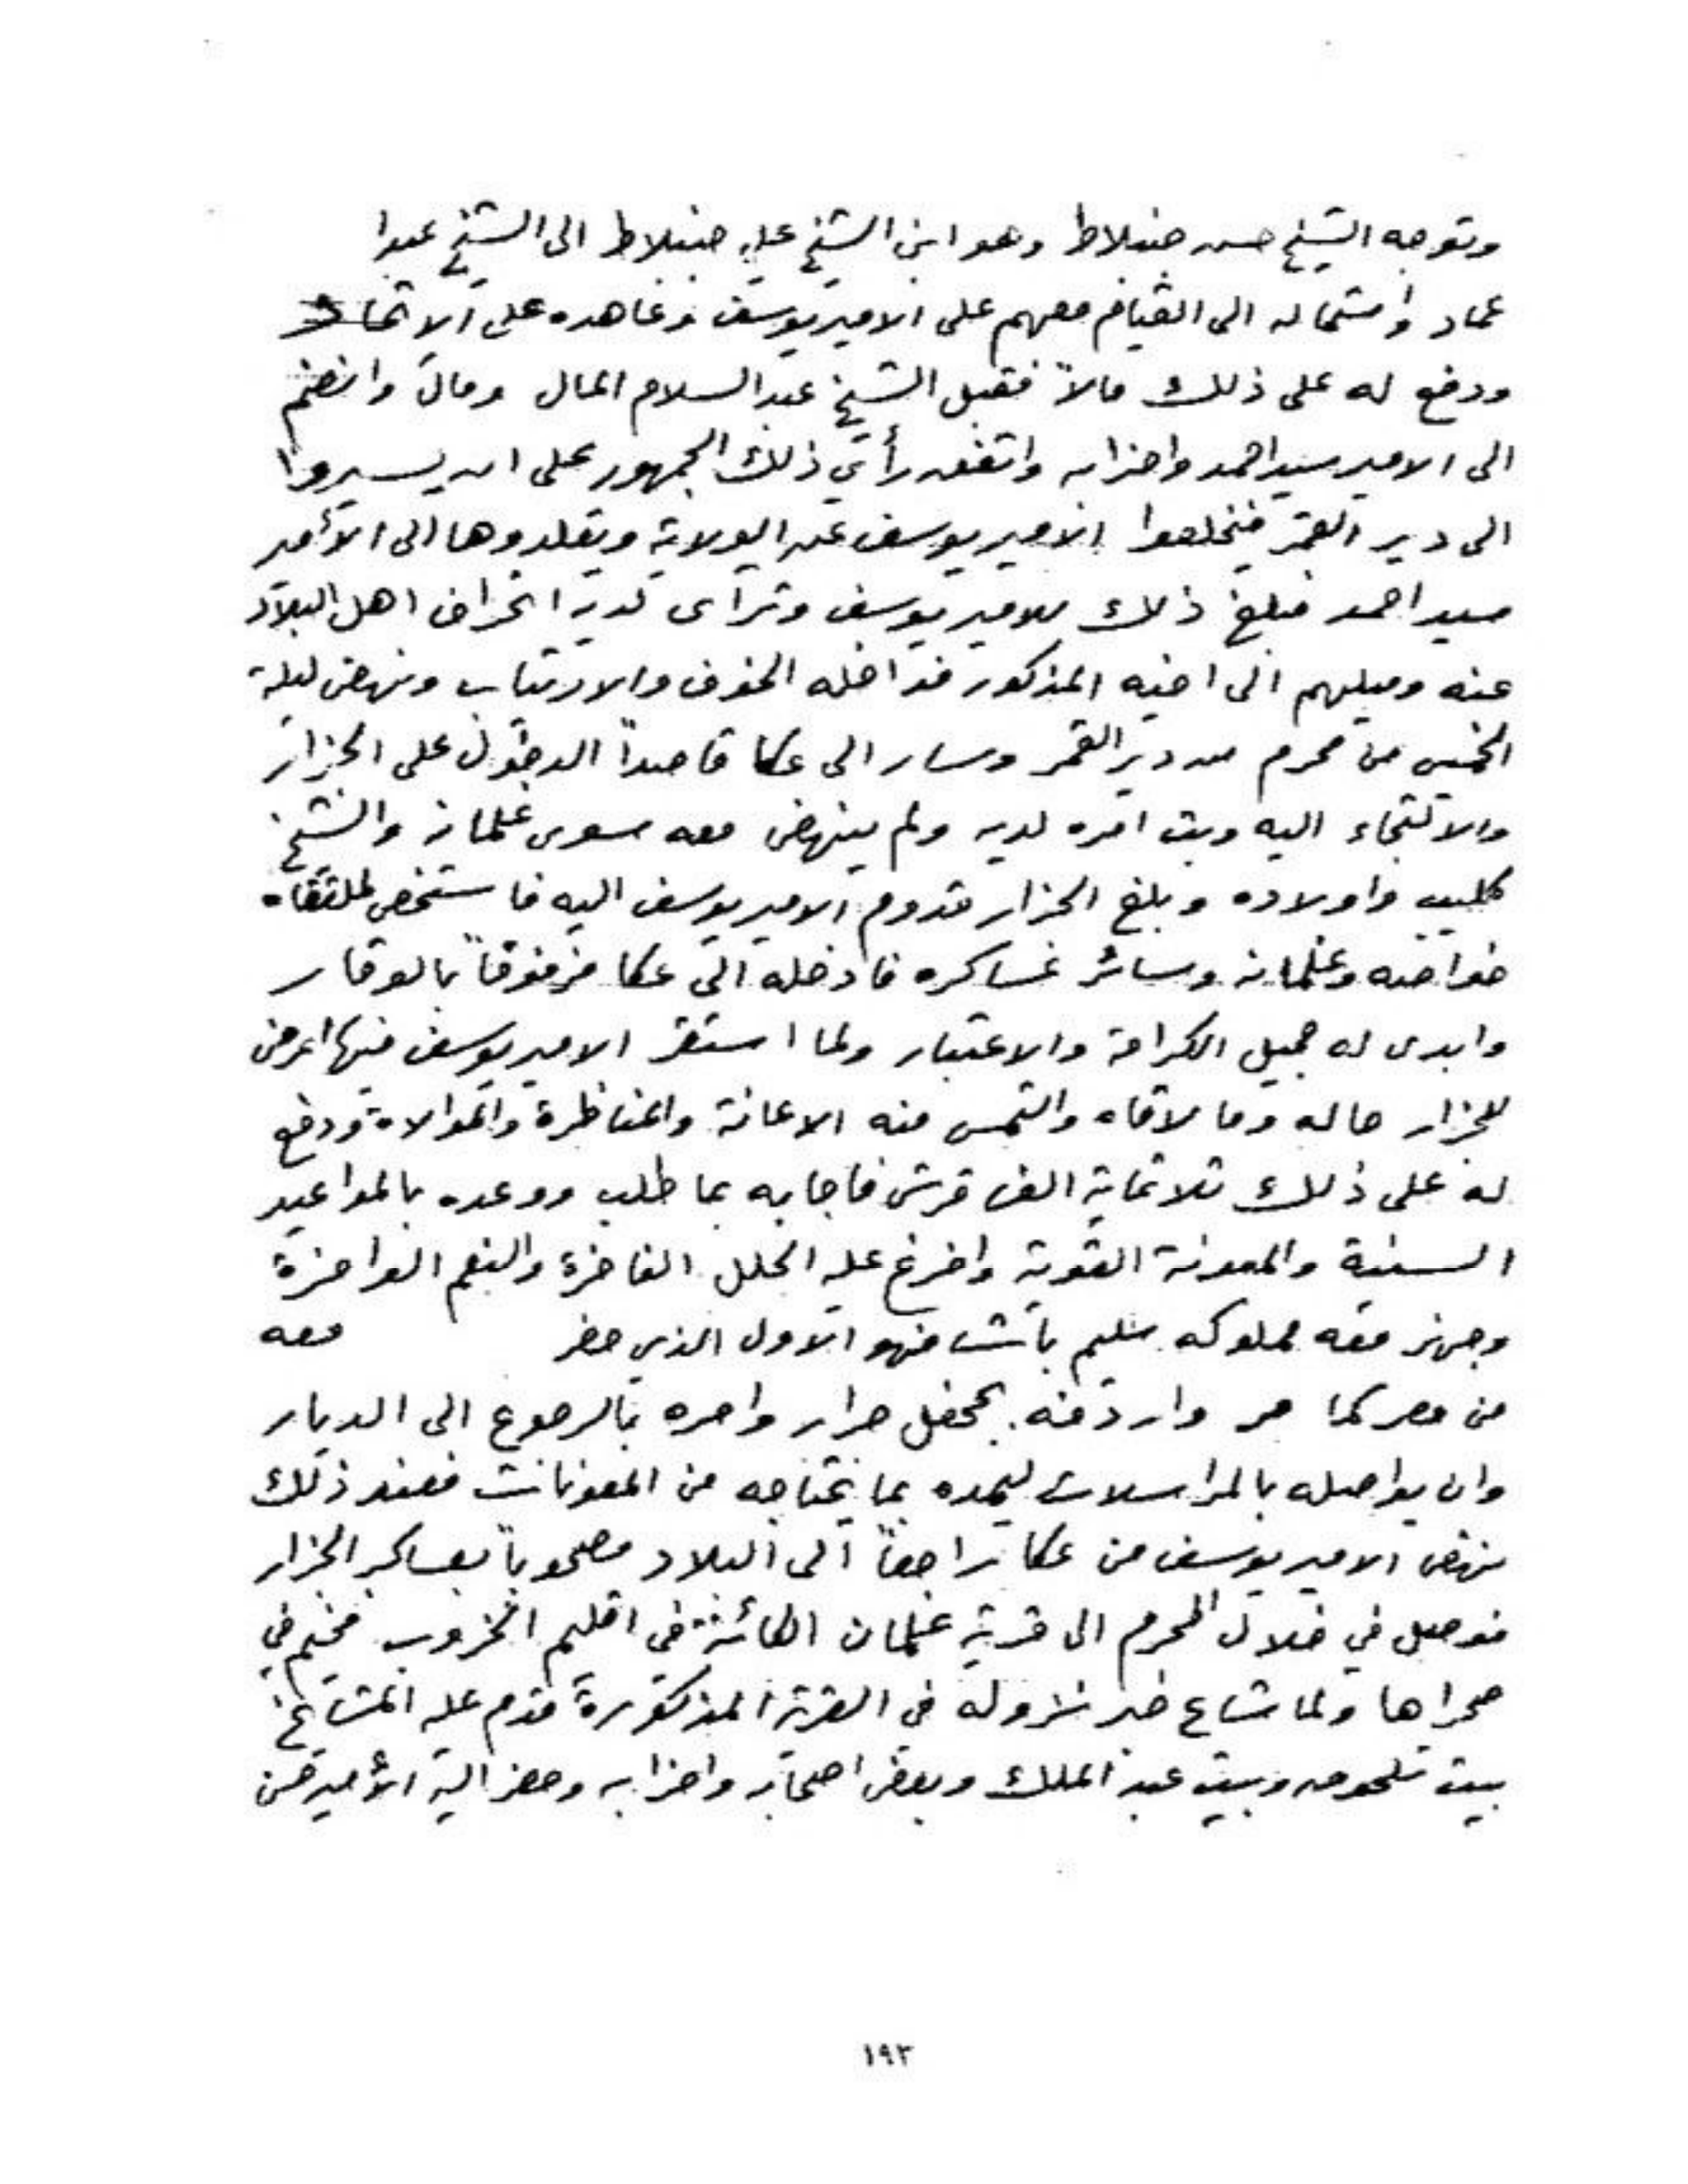 وتوجه الشيخ حسن جنبلاط وهو ابن الشيخ علي جنبلاط الى الشيخ عبدا
عماد واستماله الى القيام معهم على الامير يوسف وعاهده على الاتحاد
ودفع له على ذلك مالاً فقبل الشيخ عبد السلام المال ومال وانضم
الى الامير سيد احمد واحزابه واتفق رأي ذلك الجمهور على ان يسيروا
الى دير القمر فيخلعوا الامير يوسف عن الولاية ويقلدوها الى الأمير
سيد احمد فبلغ ذلك للامير يوسف وترآى لديه انحراف اهل البلاد
عنه وميلهم الى اخيه المذكور فداخله الخوف والارتياب ونهض ليلة
الخميس من محرم من دير القمر وسار الى عكا قاصداً الدخول على الجزار
والالتجاء اليه وبث امره لديه ولم ينهض معه سوى غلمانه والشيخ
كليب واولاده وبلغ الجزار قدوم الامير يوسف اليه فاستخص لملتقاه
خواصه وغلمانه وسائر عساكره فادخله الى عكا مزفوفاً بالوقار
وابدى له جميل الكرامة والاعتبار ولما استقر الامير يوسف فيها اعرض
للجزار حاله وما لاقاه والتمس منه الاعانة والمناظرة والموالاة ودفع
له على ذلك ثلاثماية الف قرش فاجابه بما طلب ووعده بالمواعيد
السنية والمعونة القوية وافرغ عليه الحلل الفاخرة والنعم الوافرة
وجهز معه مملوكه سليم باشا فهو الاول الذي حضر معه
من مصر كما مر واردفه بجحفل جرار وامره بالرجوع الى الديار
وان يواصله بالمراسلات ليمده بما يحتاجه من المعونات فعند ذلك
نهض الامير يوسف من عكا راجعاً الى البلاد مصحوباً بعساكر الجزار
فوصل في خلال المحرم الى قرية علمان الكائنة في اقليم الخروب فخيم في
صحراها ولما شاع خبر نزوله في القرية المذكورة قدم عليه المشايخ
بيت تلحوق وبيت عبد الملك وبعض اصحابه واحزابه وحضر اليه الأمير حسن
١٩٣